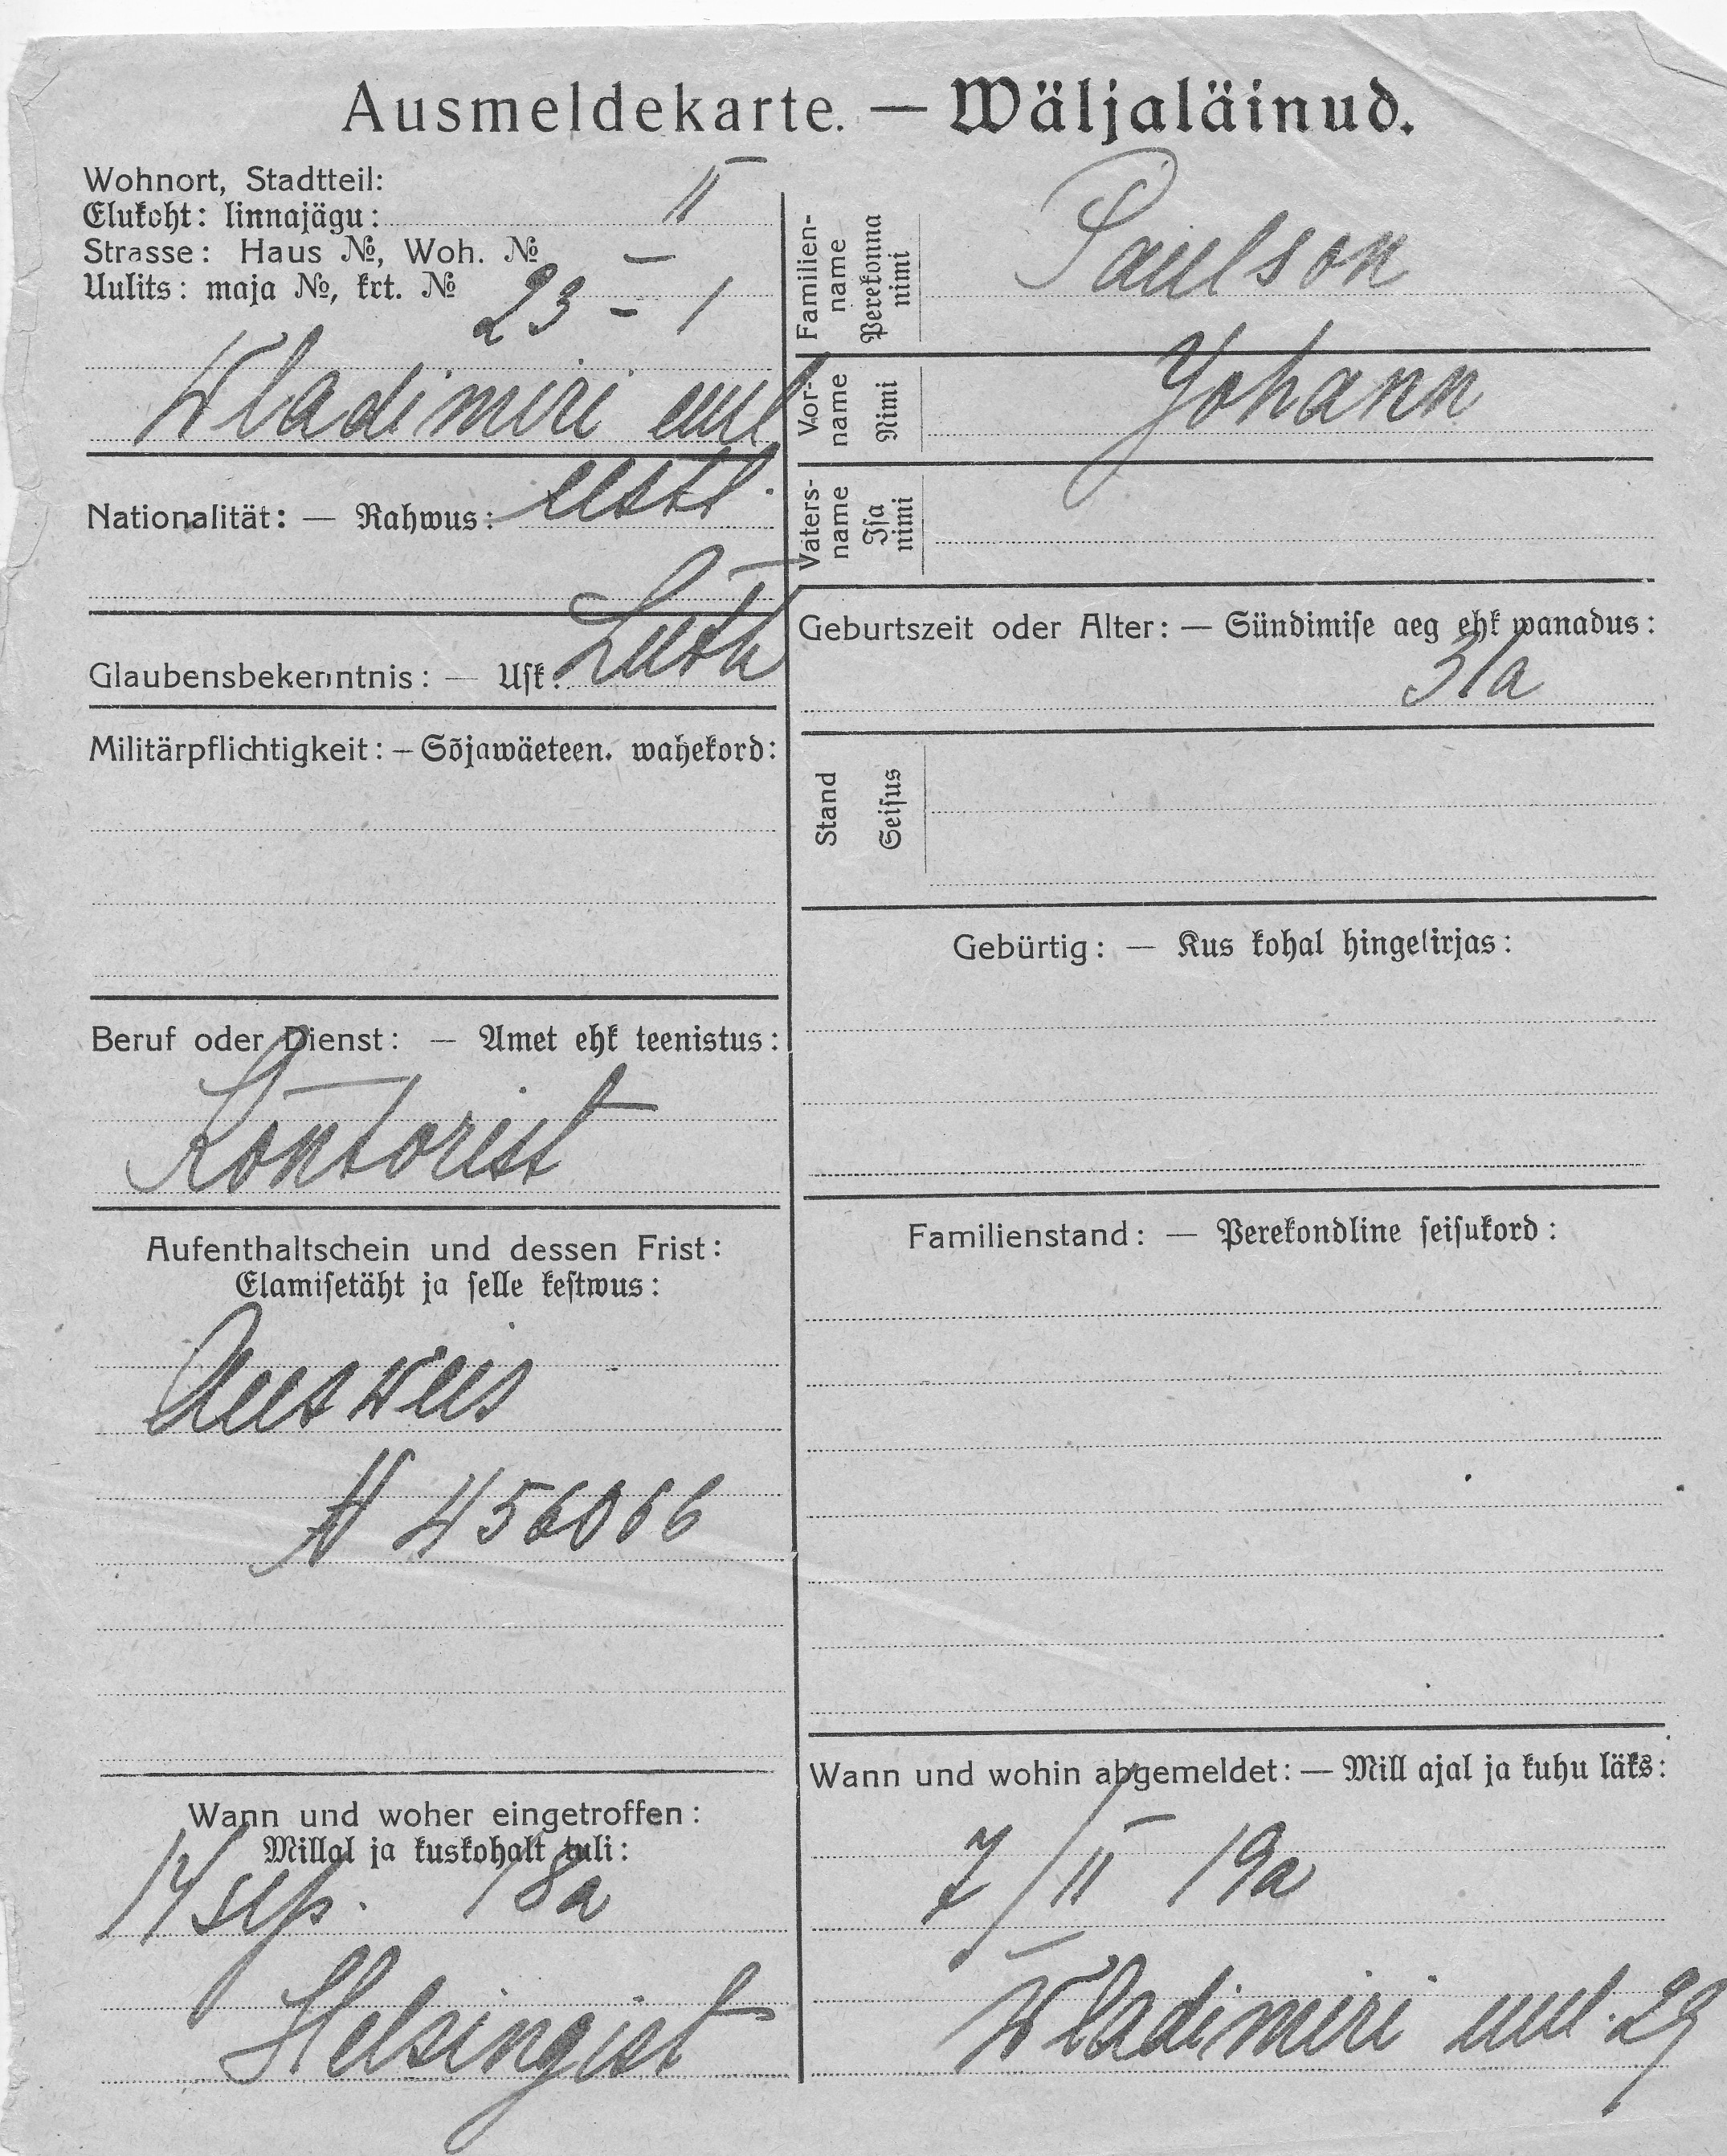 Ausmeldekarte. — Wäljaläinud.
Wohnort, Stadtteil:
Elukoht: linnajägu: II
Strasse: Haus №, Woh. №
Uulits: maja №, krt. № 23 - 1
Wladimiri uul
Nationalität: — Rahwus: eestl.
Glaubensbekenntnis: — Usk: Luth
Militärpflichtigkeit: — Sõjawäeteen. wahekord:
Beruf oder Dienst: — Amet ehk teenistus:
Kontorist
Aufenthaltschein und dessen Frist:
Elamisetäht ja selle kestwus:
Ausweis
N 456066
Wann und woher eingetroffen:
Millal ja kuskohalt tuli:
14 sep. 18a
Helsingist
Familien-
name
Perekonna
nimi
Paulson
Vor-
name
Nimi
Johann
Vaters-
name
Isa
nimi
Geburtszeit oder Alter: — Sündimise aeg ehk wanadus:
31a
Stand
Seisus
Gebürtig: — Kus kohal hingekirjas:
Familienstand: — Perekondline seisukord:
Wann und wohin abgemeldet: — Mill ajal ja kuhu läks:
7/II 19a
Wladimiri uul. 29